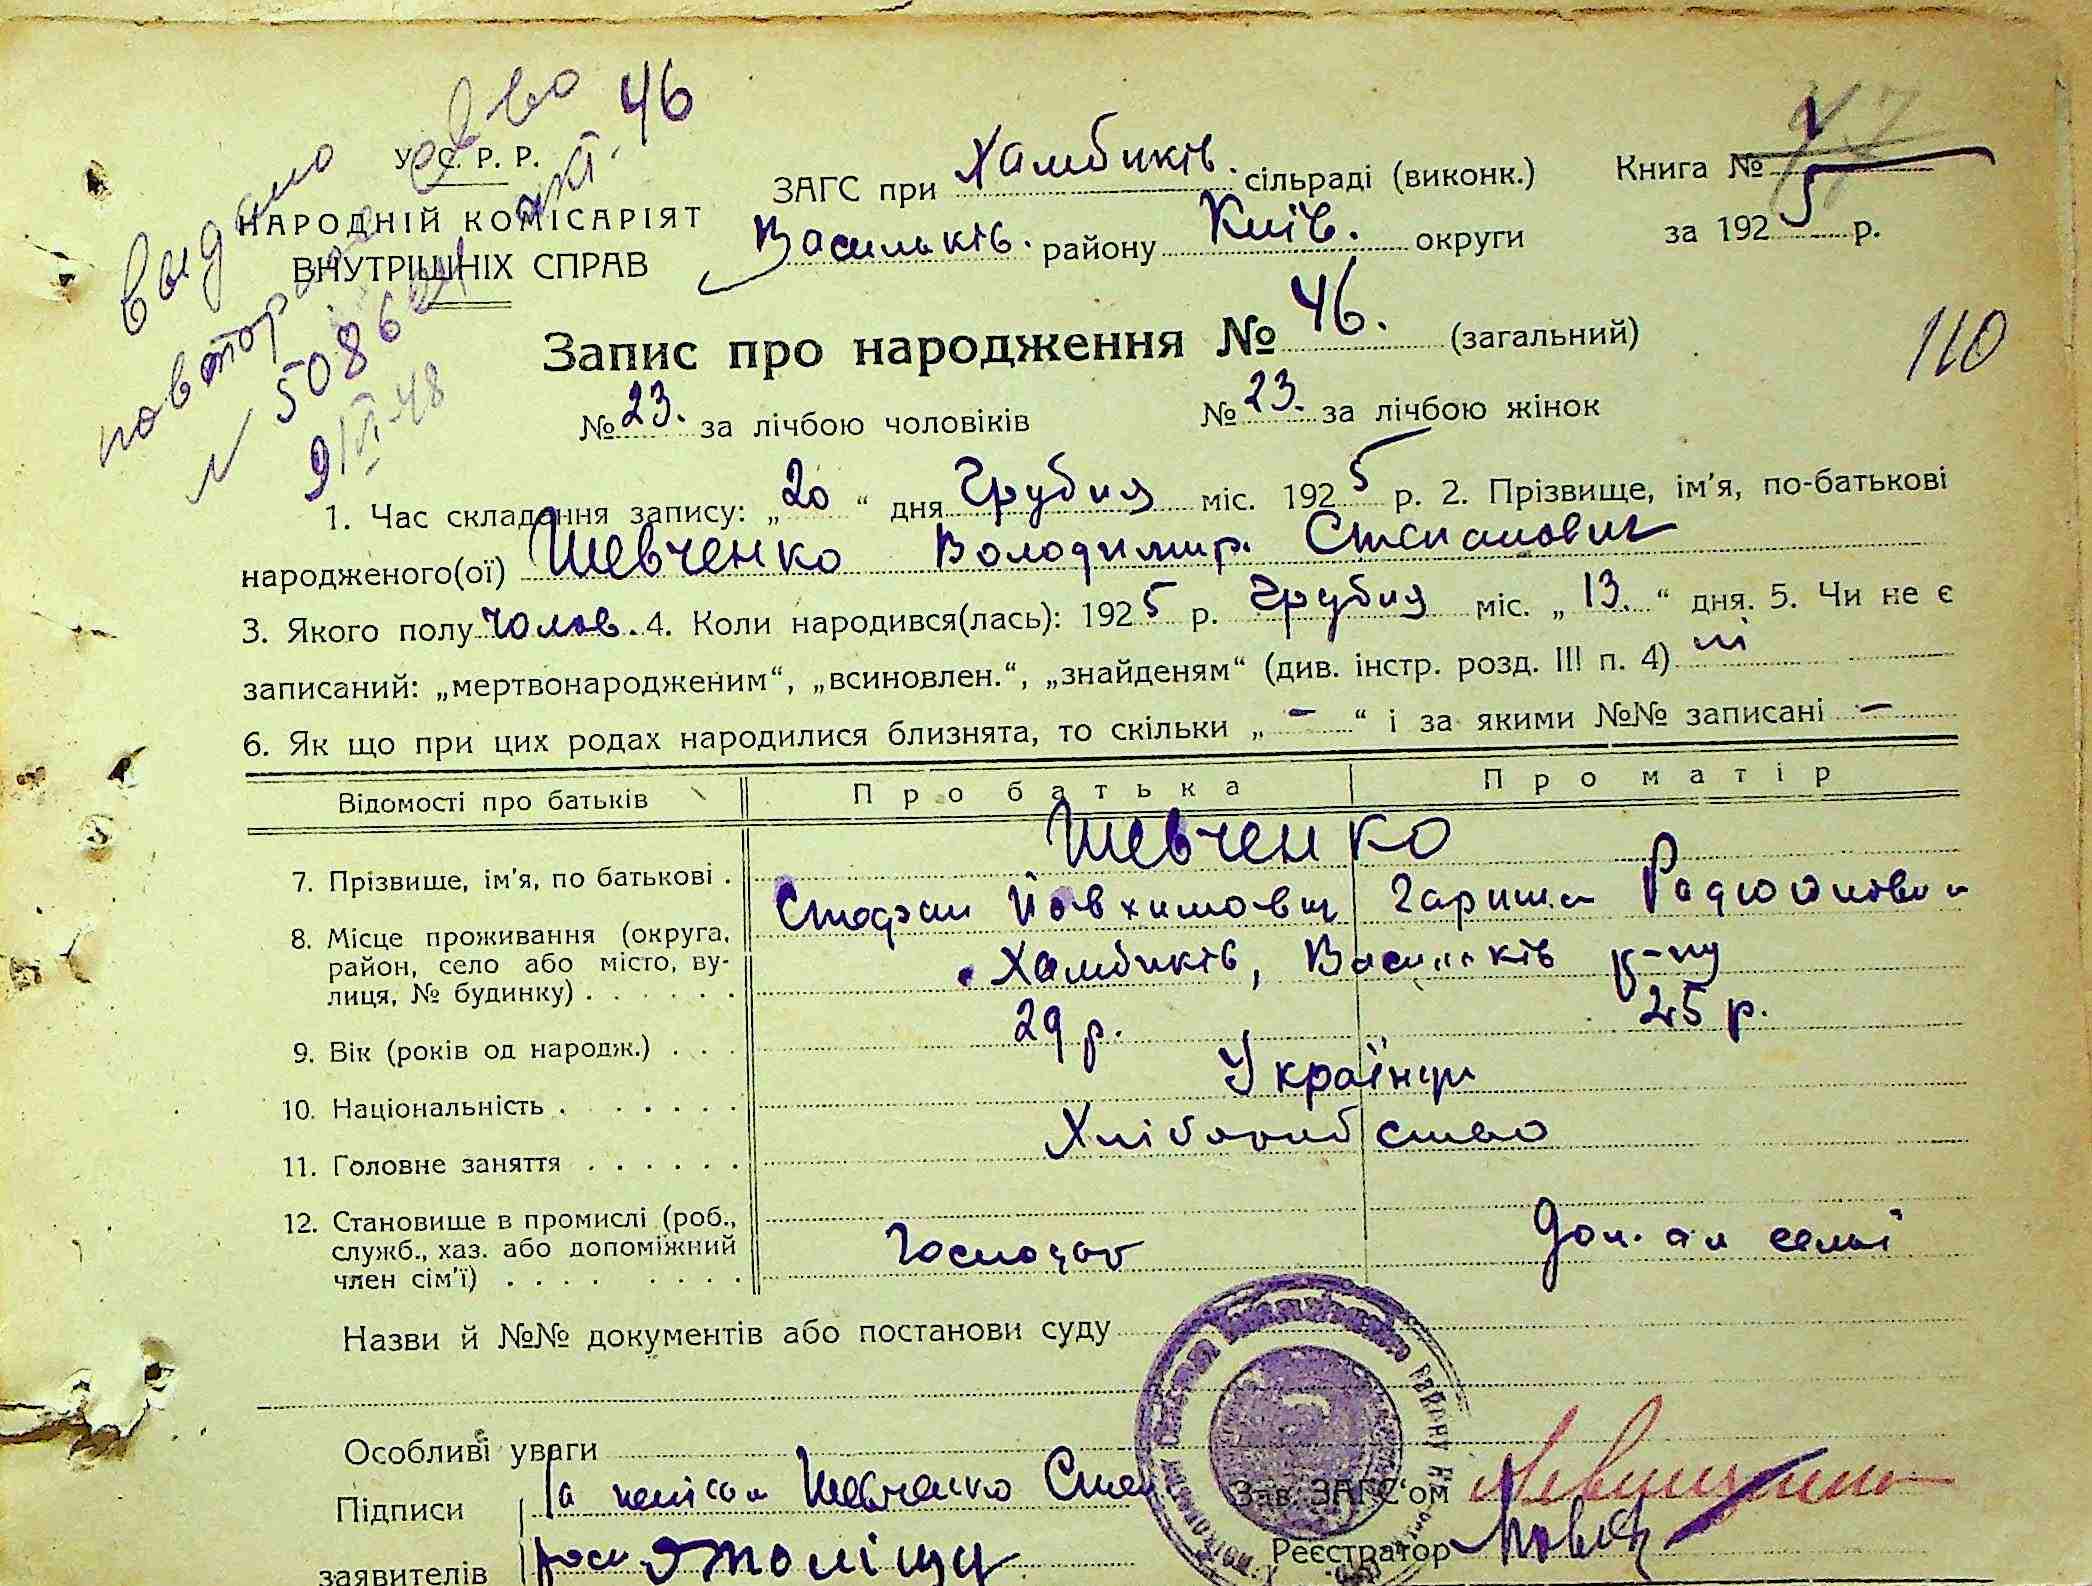 Видано повторно свво
№ 508604 акт. 46
9/VI-48
У. С. Р. Р.
НАРОДНІЙ КОМІСАРІЯТ
ВНУТРІШНІХ СПРАВ
ЗАГС при Хамбиків. сільраді (виконк.) Книга №
Васильків. району Київ. округи за 1925 р.
Запис про народження № 46. (загальний)
110
№ 23. за лічбою чоловіків № 23. за лічбою жінок
1. Час складання запису: „20“ дня Грудня міс. 1925 р. 2. Прізвище, ім'я, по-батькові
народженого(ої) Шевченко Володимир. Степанович
3. Якого полу чолов. 4. Коли народився(лась): 1925 р. Грудня міс. „13.“ дня. 5. Чи не є
записаний: „мертвонародженим“, „всиновлен.“, „знайденям“ (див. інстр. розд. III п. 4) ні
6. Як що при цих родах народилися близнята, то скільки „ - “ і за якими №№ записані -
Відомості про батьків Про батька Про матір
Шевченко
7. Прізвище, ім'я, по батькові . Йовхимович
8. Місце проживання (округа,
район, село або місто, ву-
лиця, № будинку) . . . . . . Хамбиків, Васильків р-ну
9. Вік (років од народж.) . . . 29 р. 25 р.
10. Національність . . . . . . . Українци
11. Головне заняття . . . . . . Хліборобство
12. Становище в промислі (роб.,
служб., хаз. або допоміжний
член сім'ї) . . . . . . . . . Господар Доп. чл семї
Назви й №№ документів або постанови суду
Особливі уваги
Підписи Шевченко Зав. ЗАГС'ом
заявителів Реєстратор